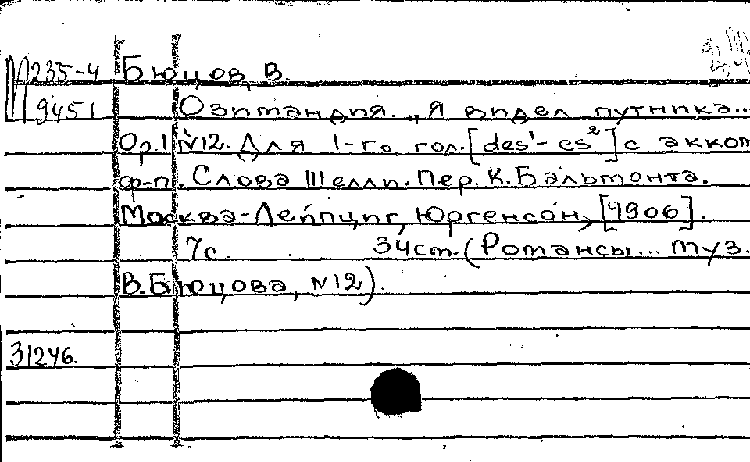 М235-4 Бюцов, В.
9451 Озимандия. „Я видел путника...
Op.1 №12. Для 1-го гол. [des¹-es²] с акком
ф-п. Слова Шелли. Пер. К. Бальмонта.
Москва-Лейпциг, Юргенсон, [1906].
7с. 34ст. (Романсы... муз.
В. Бюцова, №12).
31246.